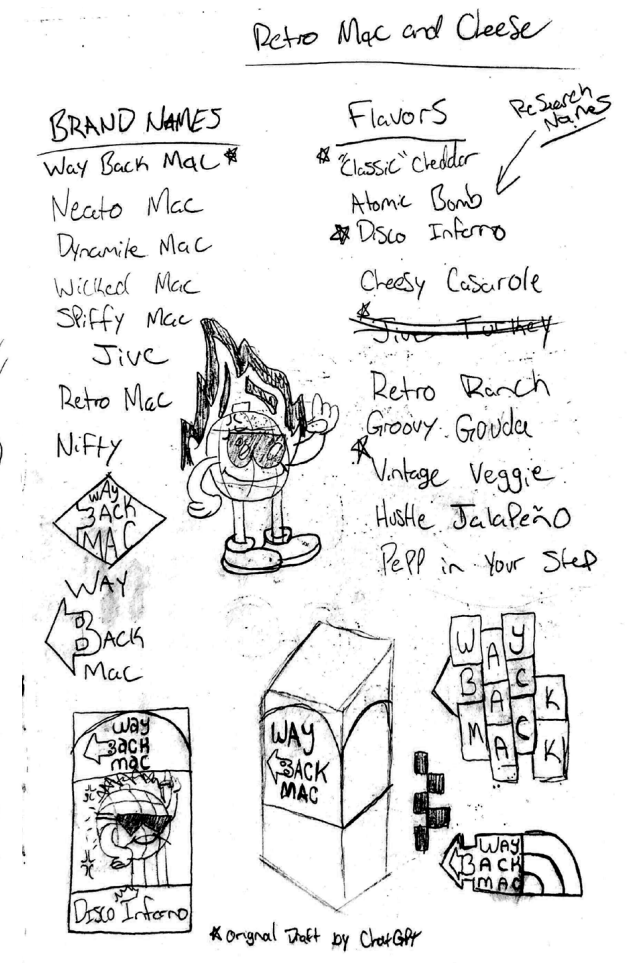 Retro Mac and Cheese
BRAND NAMES
Way Back Mac
Neato Mac
Dynamite Mac
Wicked Mac
Spiffy Mac
Jive
Retro Mac
Nifty
Flavors
Research
Names
"Classic" Cheddar
Atomic Bomb
Disco Inferno
Cheesy Casarole
Jive Turkey
Retro Ranch
Groovy Gouda
Vintage Veggie
Hustle Jalapeño
Pepp in Your Step
WAY
BACK
MAC
WAY
BACK
MAC
WAY
BACK
MAC
Disco Inferno
WAY
BACK
MAC
WAY
BACK
MACK
WAY
BACK
MAC
original Draft by ChatGPT